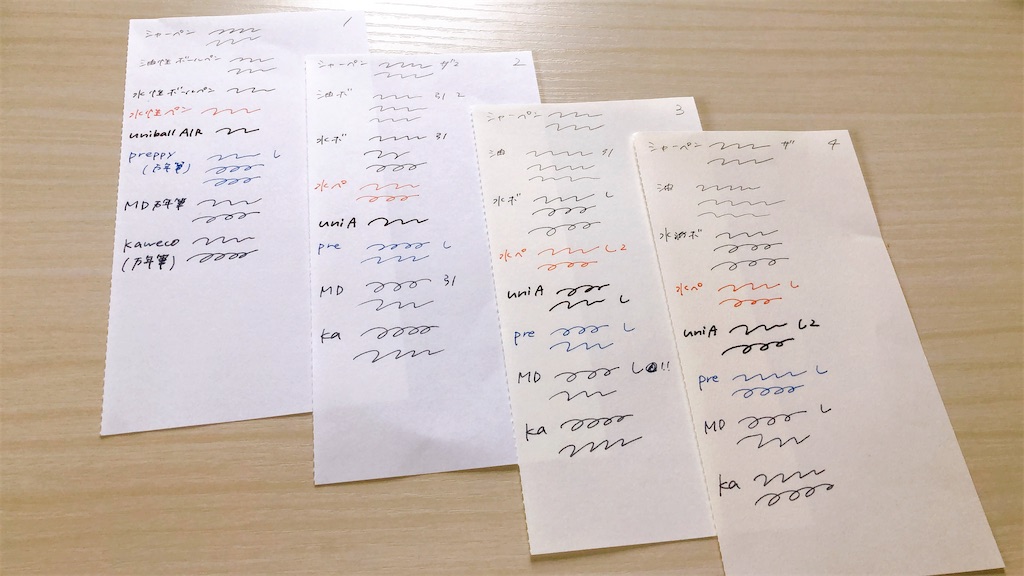 1
シャーペン
油性ボールペン
水性ボールペン
水性ペン
uniball AIR
preppy し
(万年筆)
MD万年筆
kaweco
(万年筆)
2
シャーペン ザ2
油ボ ヨ1 2
水ボ ヨ1
水ペ
uniA
pre し
MD ヨ1
ka
3
シャーペン
油 ヨ1
水ボ し
水ペ し2
uniA
し
pre し
MD し !!
ka
4
シャーペン ザ
油
水 ボ
水ペ し
uniA し2
pre し
MD し
ka